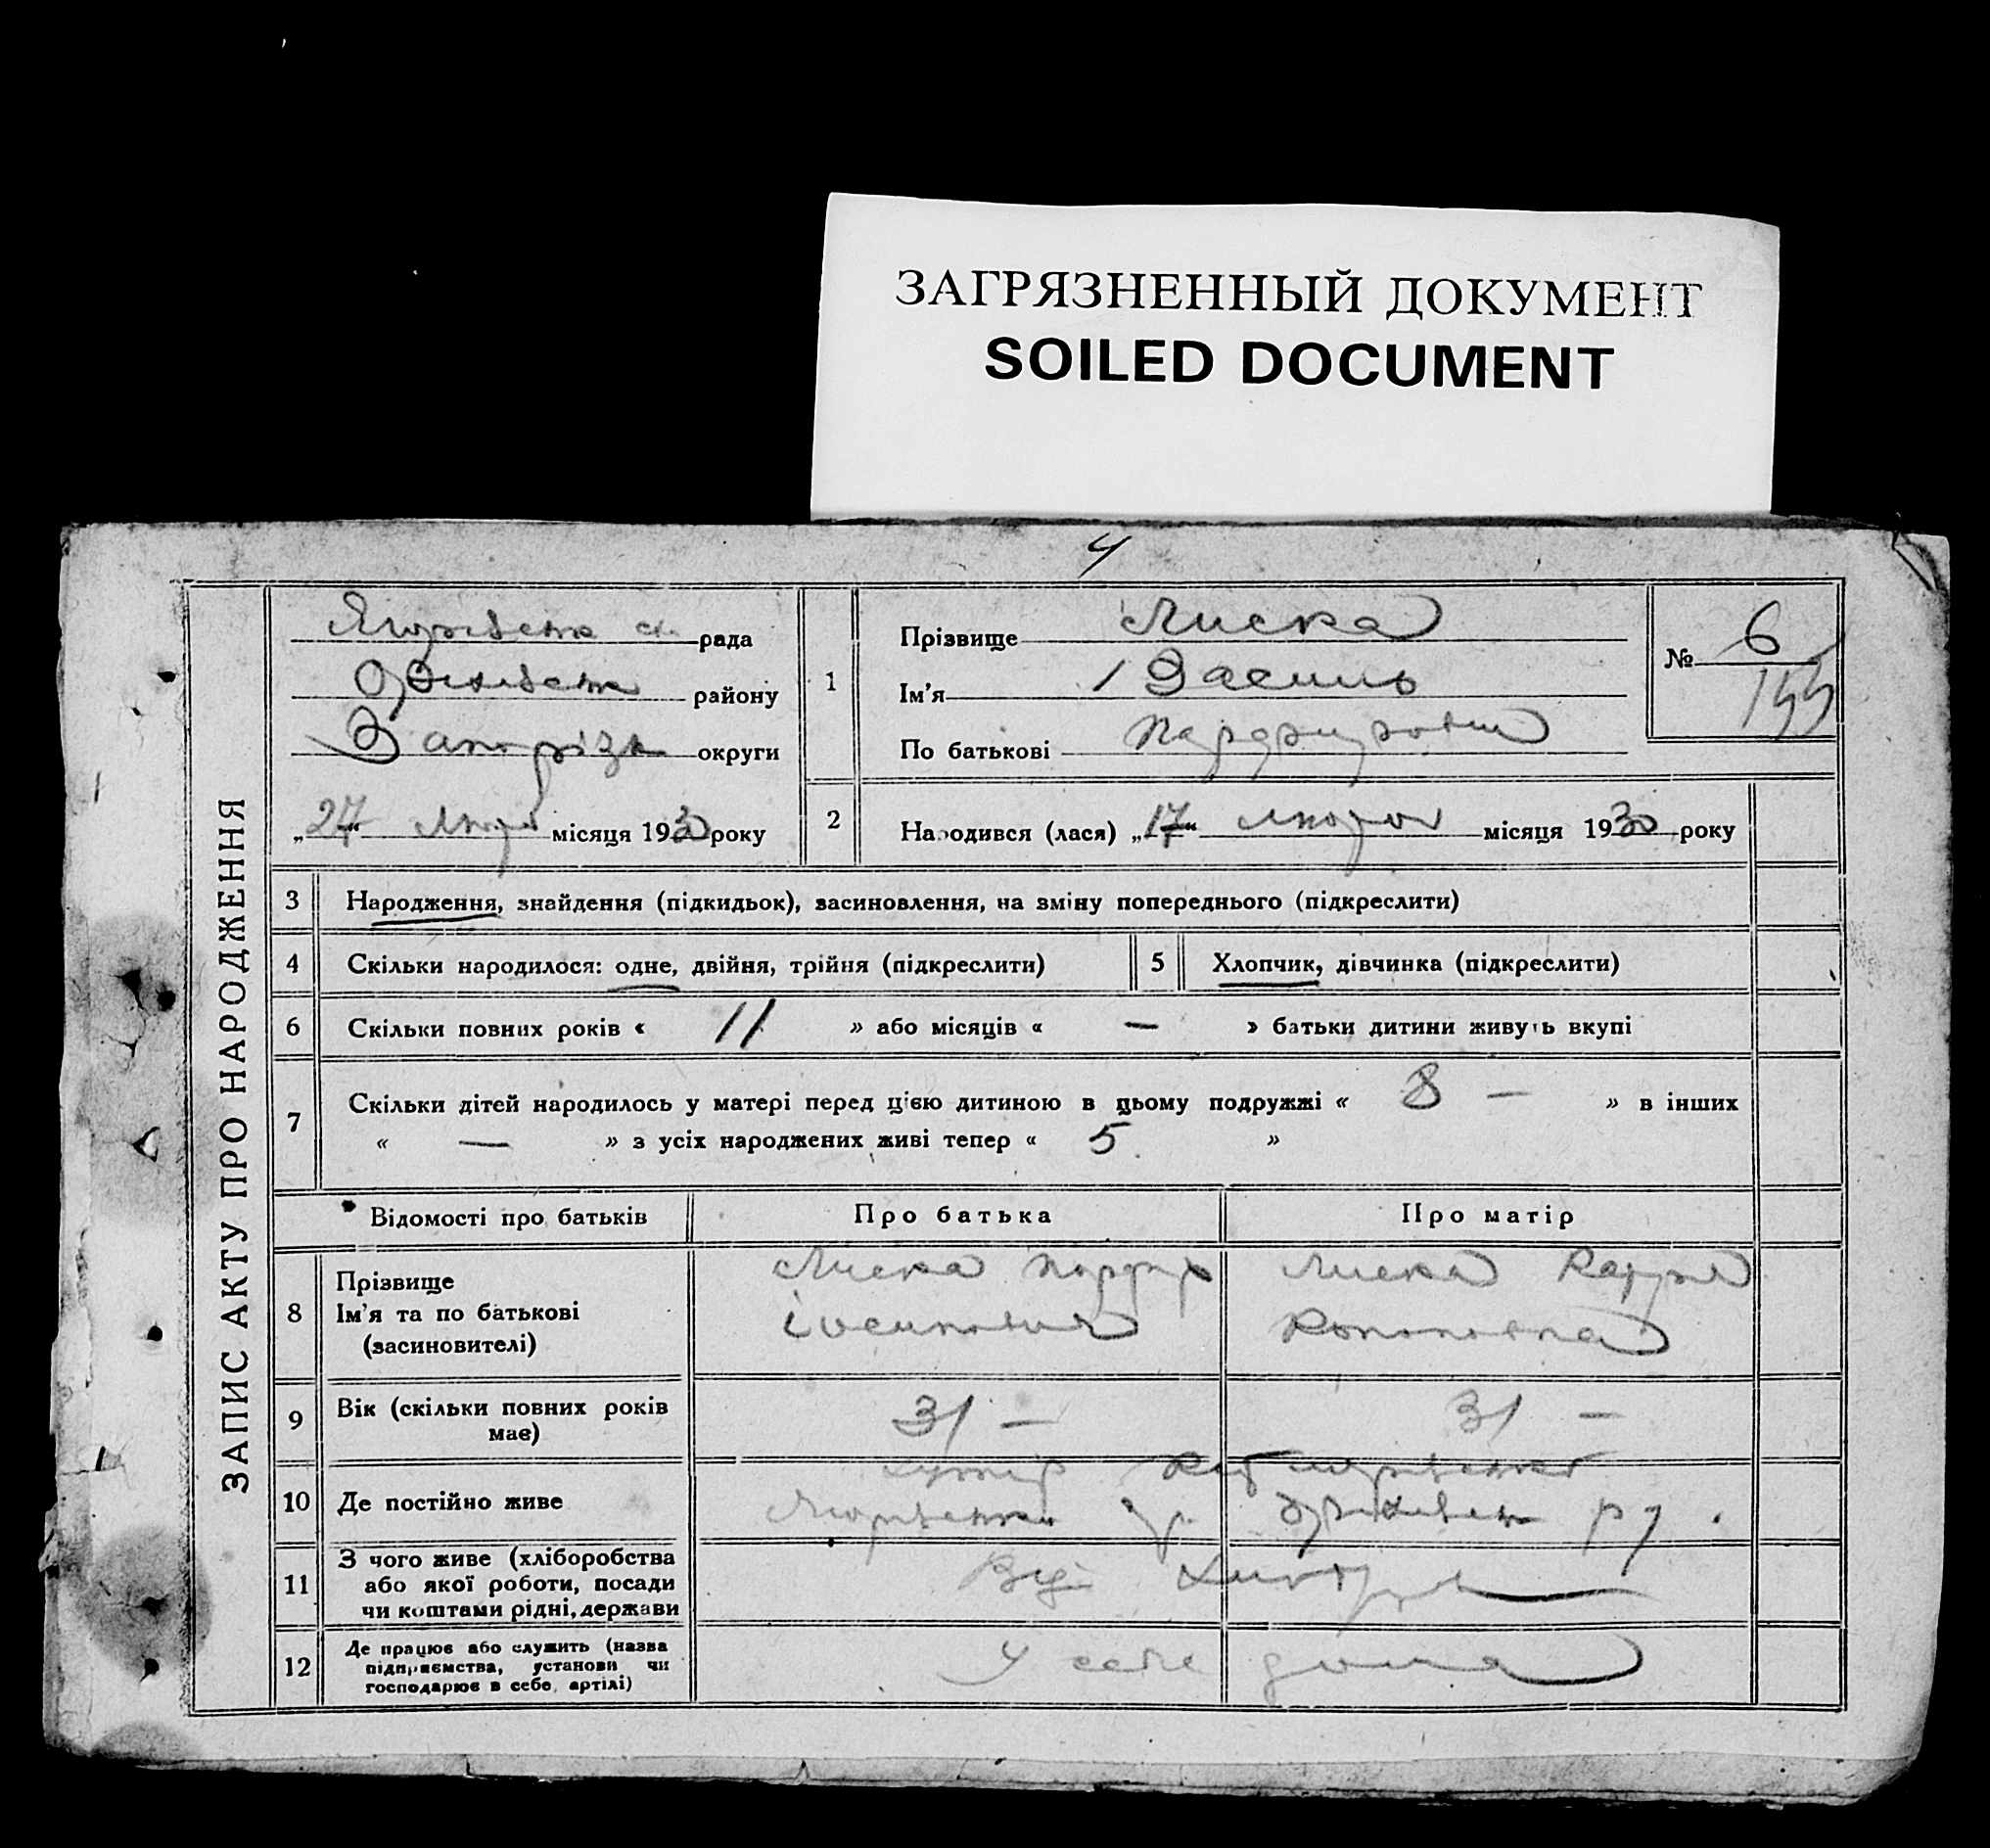 ЗАГРЯЗНЕННЫЙ ДОКУМЕНТ
SOILED DOCUMENT
ЗАПИС АКТУ ПРО НАРОДЖЕННЯ
рада
району
Запорізк округи
„27“ місяця 1930 року
1
Прізвище Лиска
Ім'я Василь
По батькові
№ 6
2
Народився (лася) „17“ лютого місяця 1930 року
3 Народження, знайдення (підкидьок), засиновлення, на зміну попереднього (підкреслити)
4 Скільки народилося: одне, двійня, трійня (підкреслити)
5 Хлопчик, дівчинка (підкреслити)
6 Скільки повних років « 11 » або місяців « — » батьки дитини живуть вкупі
7 Скільки дітей народилось у матері перед цією дитиною в цьому подружжі « 8 — » в інших
« — » з усіх народжених живі тепер « 5 »
Відомості про батьків Про батька Про матір
8 Прізвище
Ім'я та по батькові
(засиновителі)
Лиска
Лиска
9 Вік (скільки повних років має) 31 — 31 —
10 Де постійно живе
хутір
11 З чого живе (хліборобства
або якої роботи, посади
чи коштами рідні, держави
12 Де працює або служить (назва
підприємства, установи чи
господарює в себе, артілі)
У себе дома